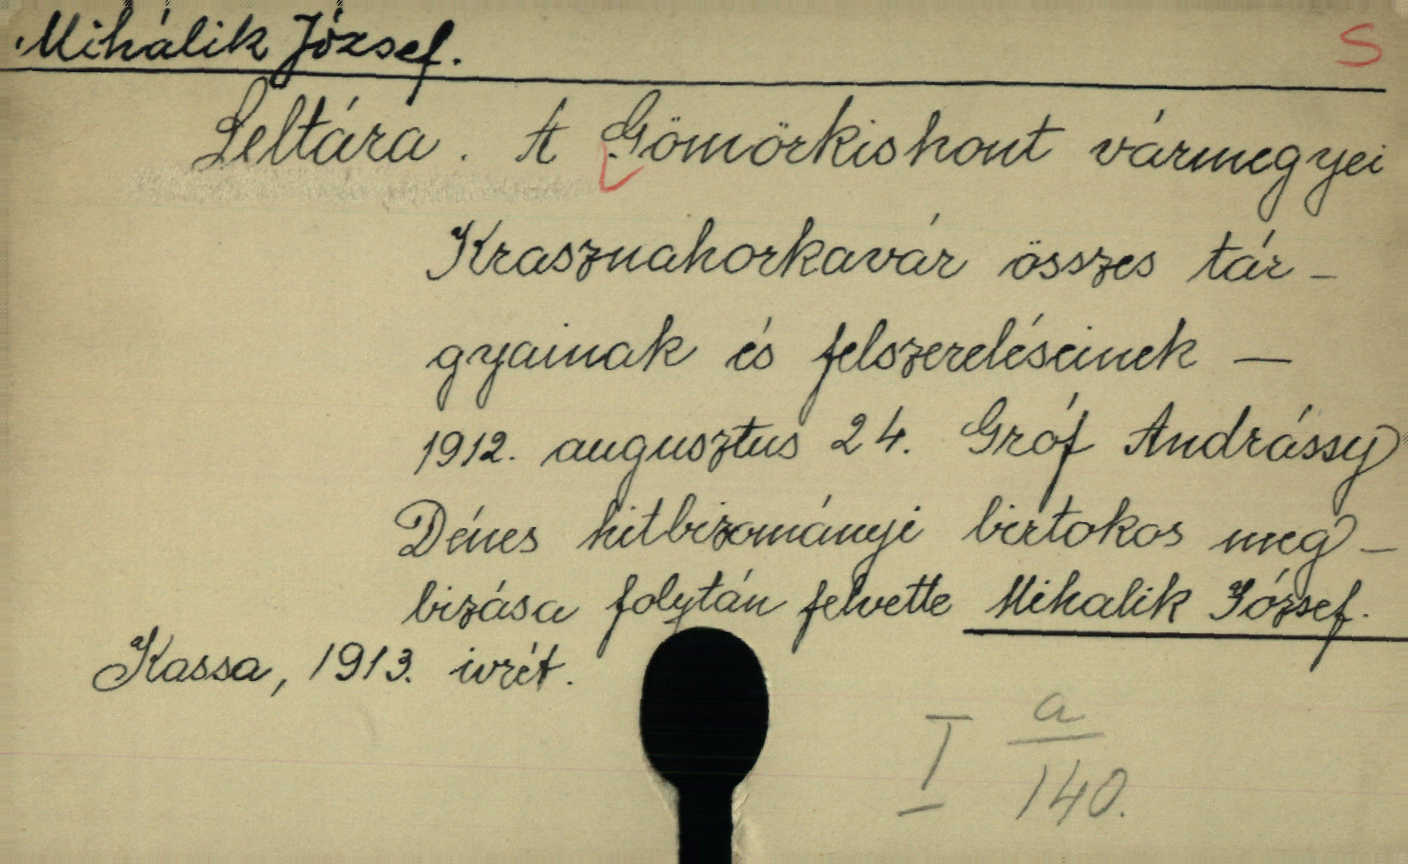 Mihálik József. S
Leltára. A Gömörkishont vármegyei
Krasznahorkavár összes tár-
gyainak és felszereléseinek —
1912. augusztus 24. Gróf Andrássy
Dénes hitbizományi birtokos meg-
bizása folytán felvette Mihalik József.
Kassa, 1913. ivrét.
I a/140.